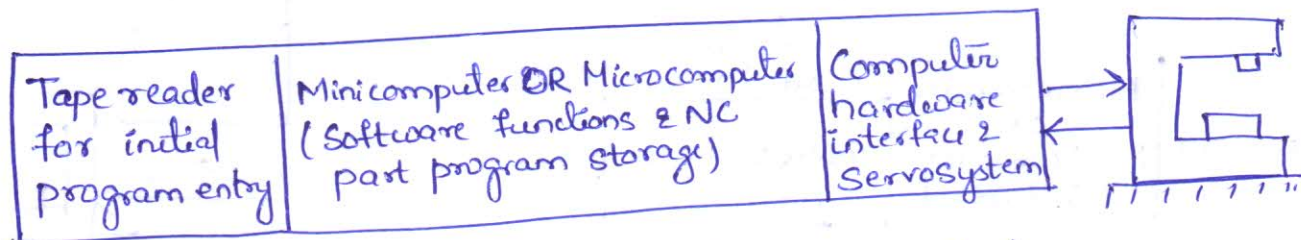 Tape reader
for initial
program entry
Minicomputer OR Microcomputer
(Software functions & NC
part program storage)
Computer
hardware
interface &
Servosystem